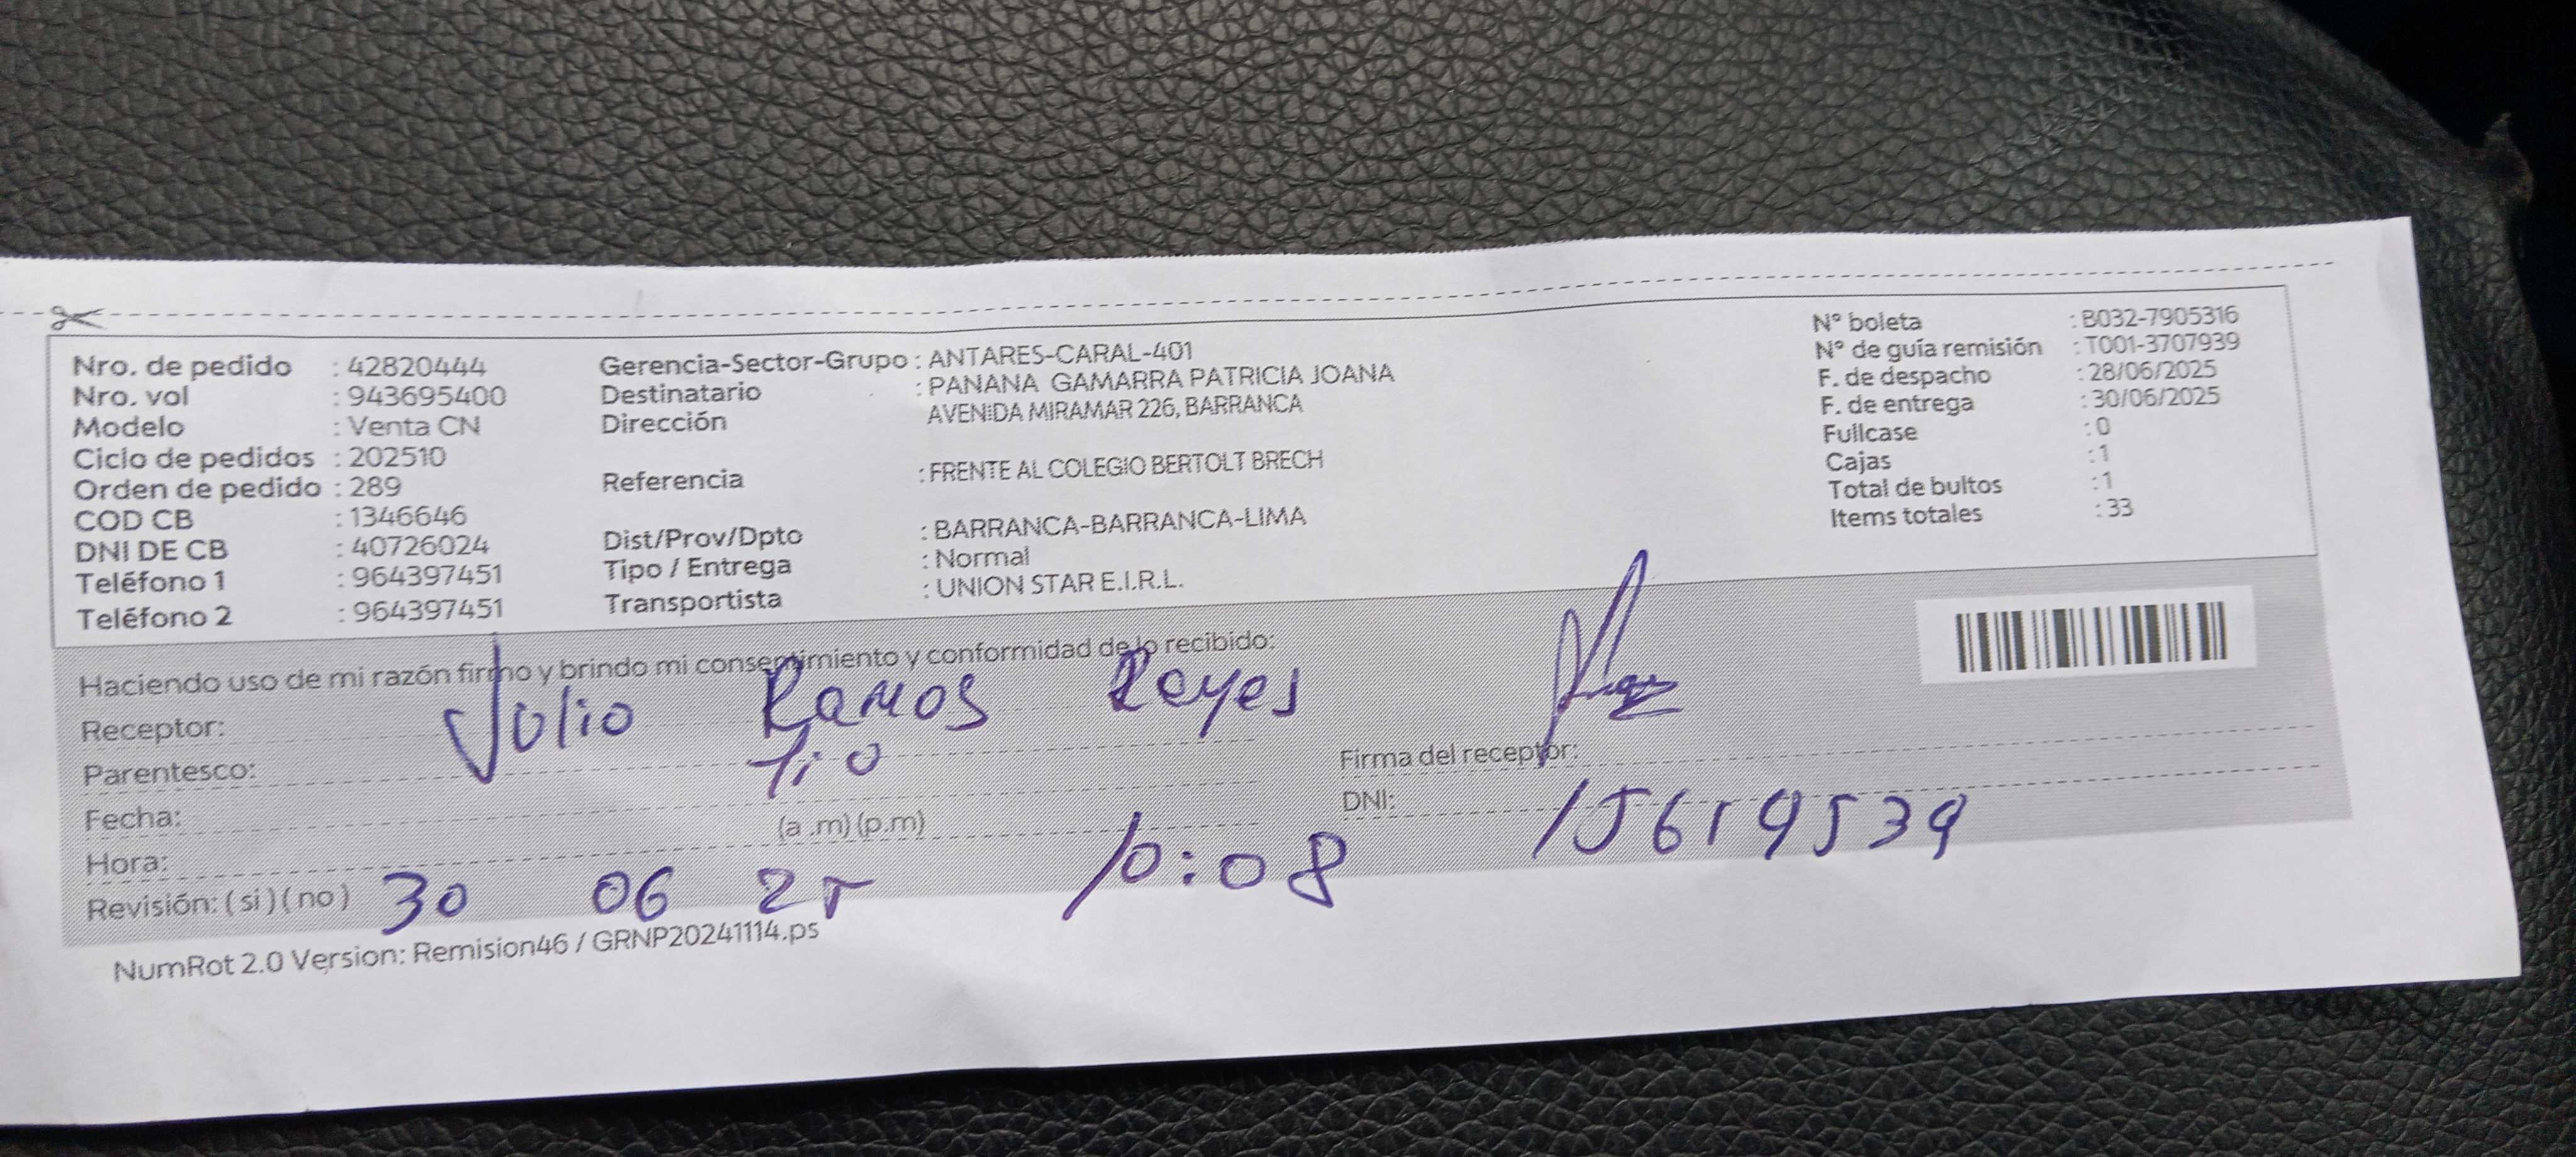 Nro. de pedido : 42820444
Nro. vol : 943695400
Modelo : Venta CN
Ciclo de pedidos : 202510
Orden de pedido : 289
COD CB : 1346646
DNI DE CB : 40726024
Teléfono 1 : 964397451
Teléfono 2 : 964397451
Gerencia-Sector-Grupo : ANTARES-CARAL-401
Destinatario : PANANA GAMARRA PATRICIA JOANA
Dirección AVENIDA MIRAMAR 226, BARRANCA
Referencia : FRENTE AL COLEGIO BERTOLT BRECH
Dist/Prov/Dpto : BARRANCA-BARRANCA-LIMA
Tipo / Entrega : Normal
Transportista : UNION STAR E.I.R.L.
N° boleta : B032-7905316
N° de guía remisión : T001-3707939
F. de despacho : 28/06/2025
F. de entrega : 30/06/2025
Fullcase : 0
Cajas : 1
Total de bultos : 1
Items totales : 33
Haciendo uso de mi razón firmo y brindo mi consentimiento y conformidad de lo recibido:
Receptor: Julio Ramos Reyes
Parentesco: Tio
Fecha:
(a .m) (p.m)
Hora:
Revisión: ( si ) ( no ) 30 06 25 10:08
Firma del receptor:
DNI: 15619539
NumRot 2.0 Version: Remision46 / GRNP20241114.ps